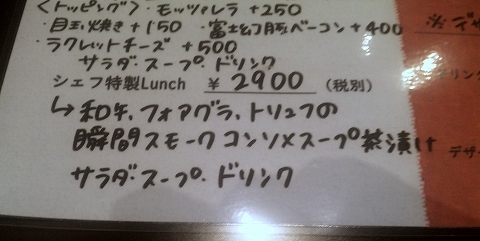 〈トッピング〉・モッツァレラ +250
・目玉焼き +150 ・富士幻豚ベーコン +400
・ラクレットチーズ +500
サラダ・スープ・ドリンク
シェフ特製Lunch ¥2900 (税別)
↳和牛、フォアグラ、トリュフの
瞬間スモークコンソメスープ茶漬け
サラダ・スープ・ドリンク